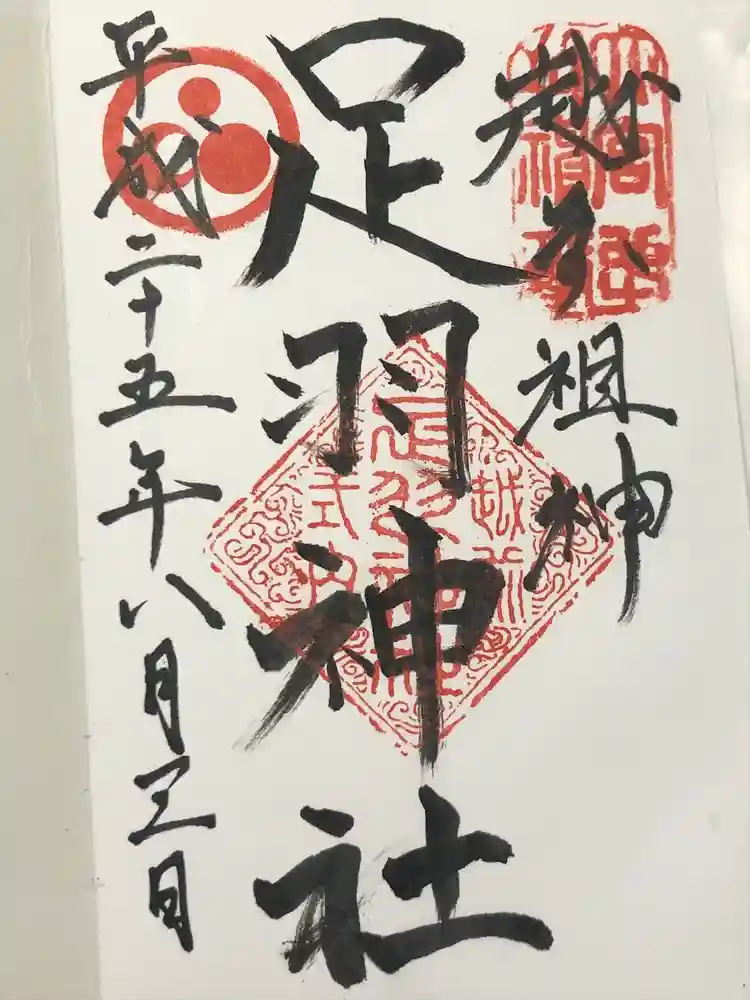 越乃祖神
足羽神社
平成二十五年八月三日
越前
足羽神社
式内